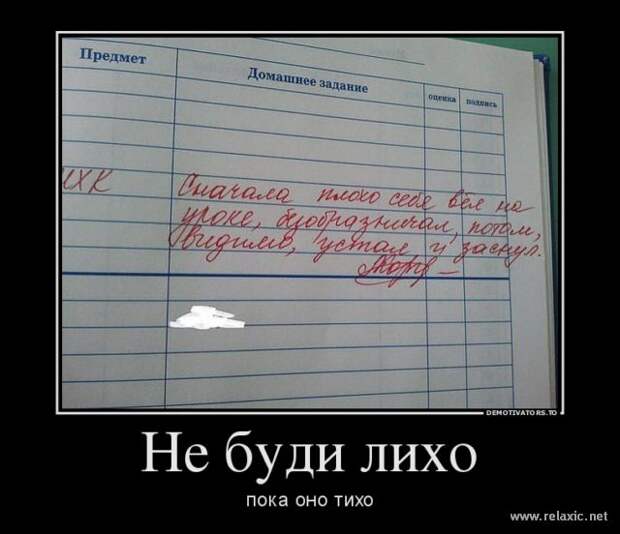 Предмет
Домашнее задание
оценка
подпись
МХК
Сначала плохо себя вёл на
уроке, безобразничал, потом,
видимо, устал и заснул.
DEMOTIVATORS.TO
Не буди лихо
пока оно тихо
www.relaxic.net